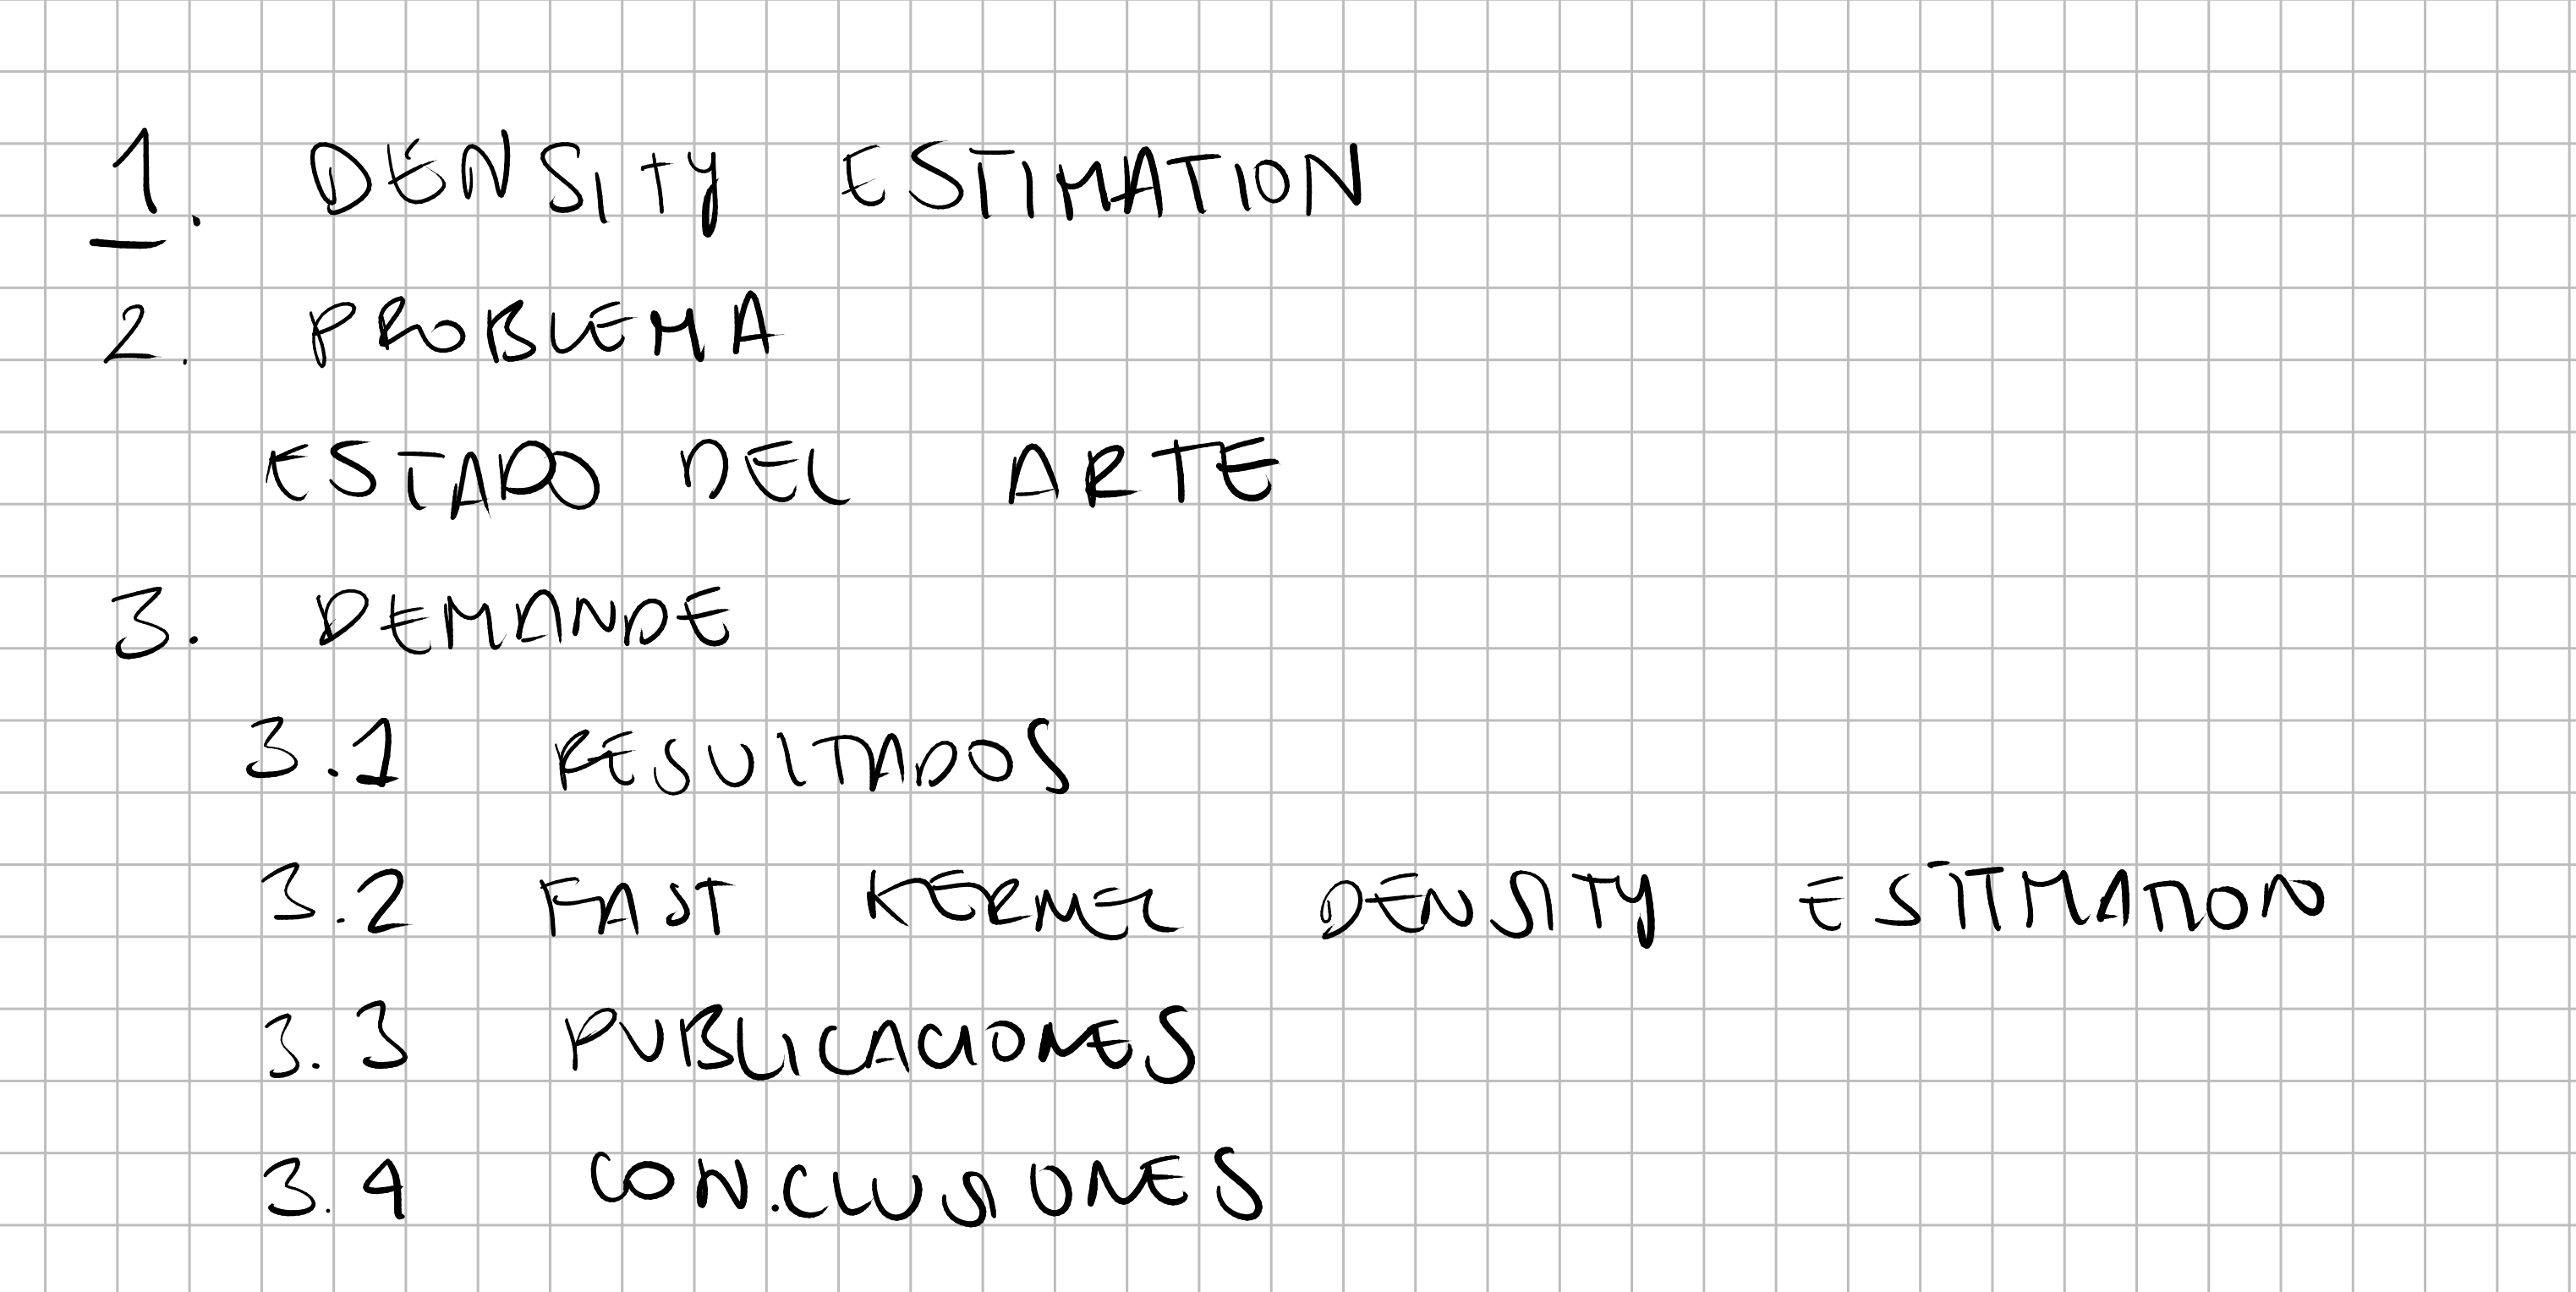 1. DENSITY ESTIMATION
2. PROBLEMA
ESTADO DEL ARTE
3. DEMANDE
3.1 RESULTADOS
3.2 FAST KERNEL DENSITY ESTIMATION
3.3 PUBLICACIONES
3.4 CONCLUSIONES